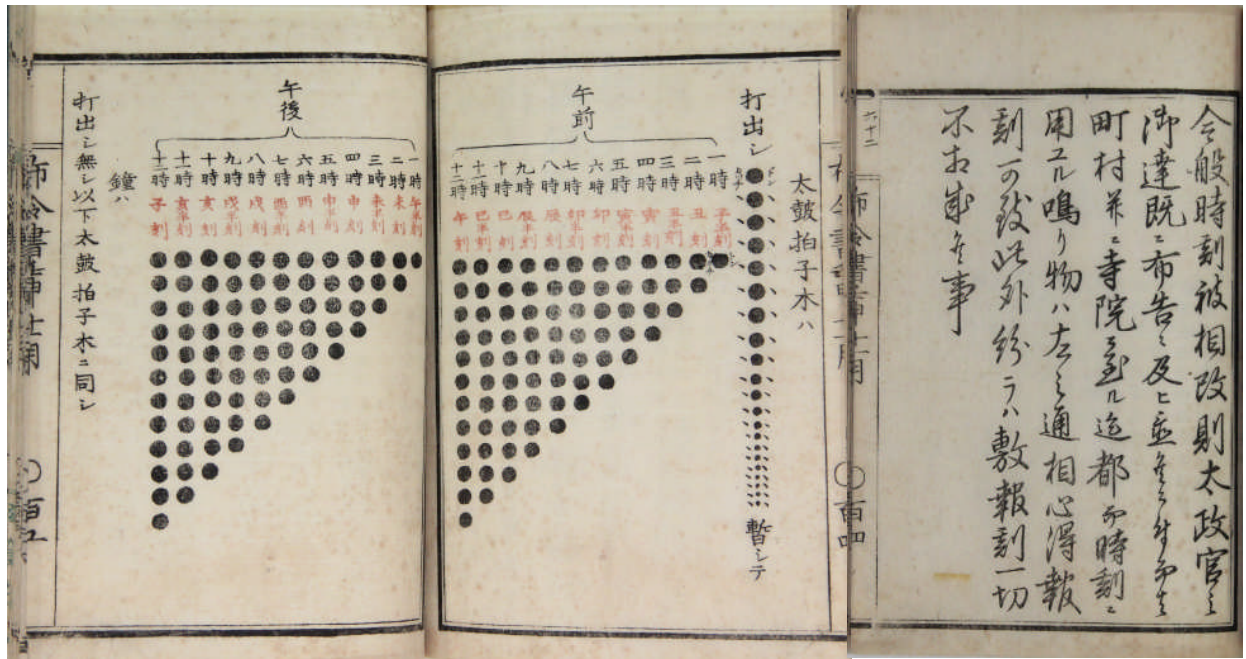 今般時刻被相改則太政官之
御達既ニ布告ニ及ヒ置候ニ付而者
町村并ニ寺院ニ至ル迄都而時刻ニ
用ユル鳴り物ハ左之通相心得報
刻可致此外紛ラハ敷報刻一切
不相成候事
六十二
百四
太鼓拍子木ハ
打出シ
暫シテ
午前ハ
一時 子半刻
二時 丑刻
三時 丑半刻
四時 寅刻
五時 寅半刻
六時 卯刻
七時 卯半刻
八時 辰刻
九時 辰半刻
十時 巳刻
十一時 巳半刻
十二時 午刻
午後ハ
一時 午半刻
二時 未刻
三時 未半刻
四時 申刻
五時 申半刻
六時 酉刻
七時 酉半刻
八時 戌刻
九時 戌半刻
十時 亥刻
十一時 亥半刻
十二時 子刻
鐘ハ
打出シ無シ以下太鼓拍子木ニ同シ